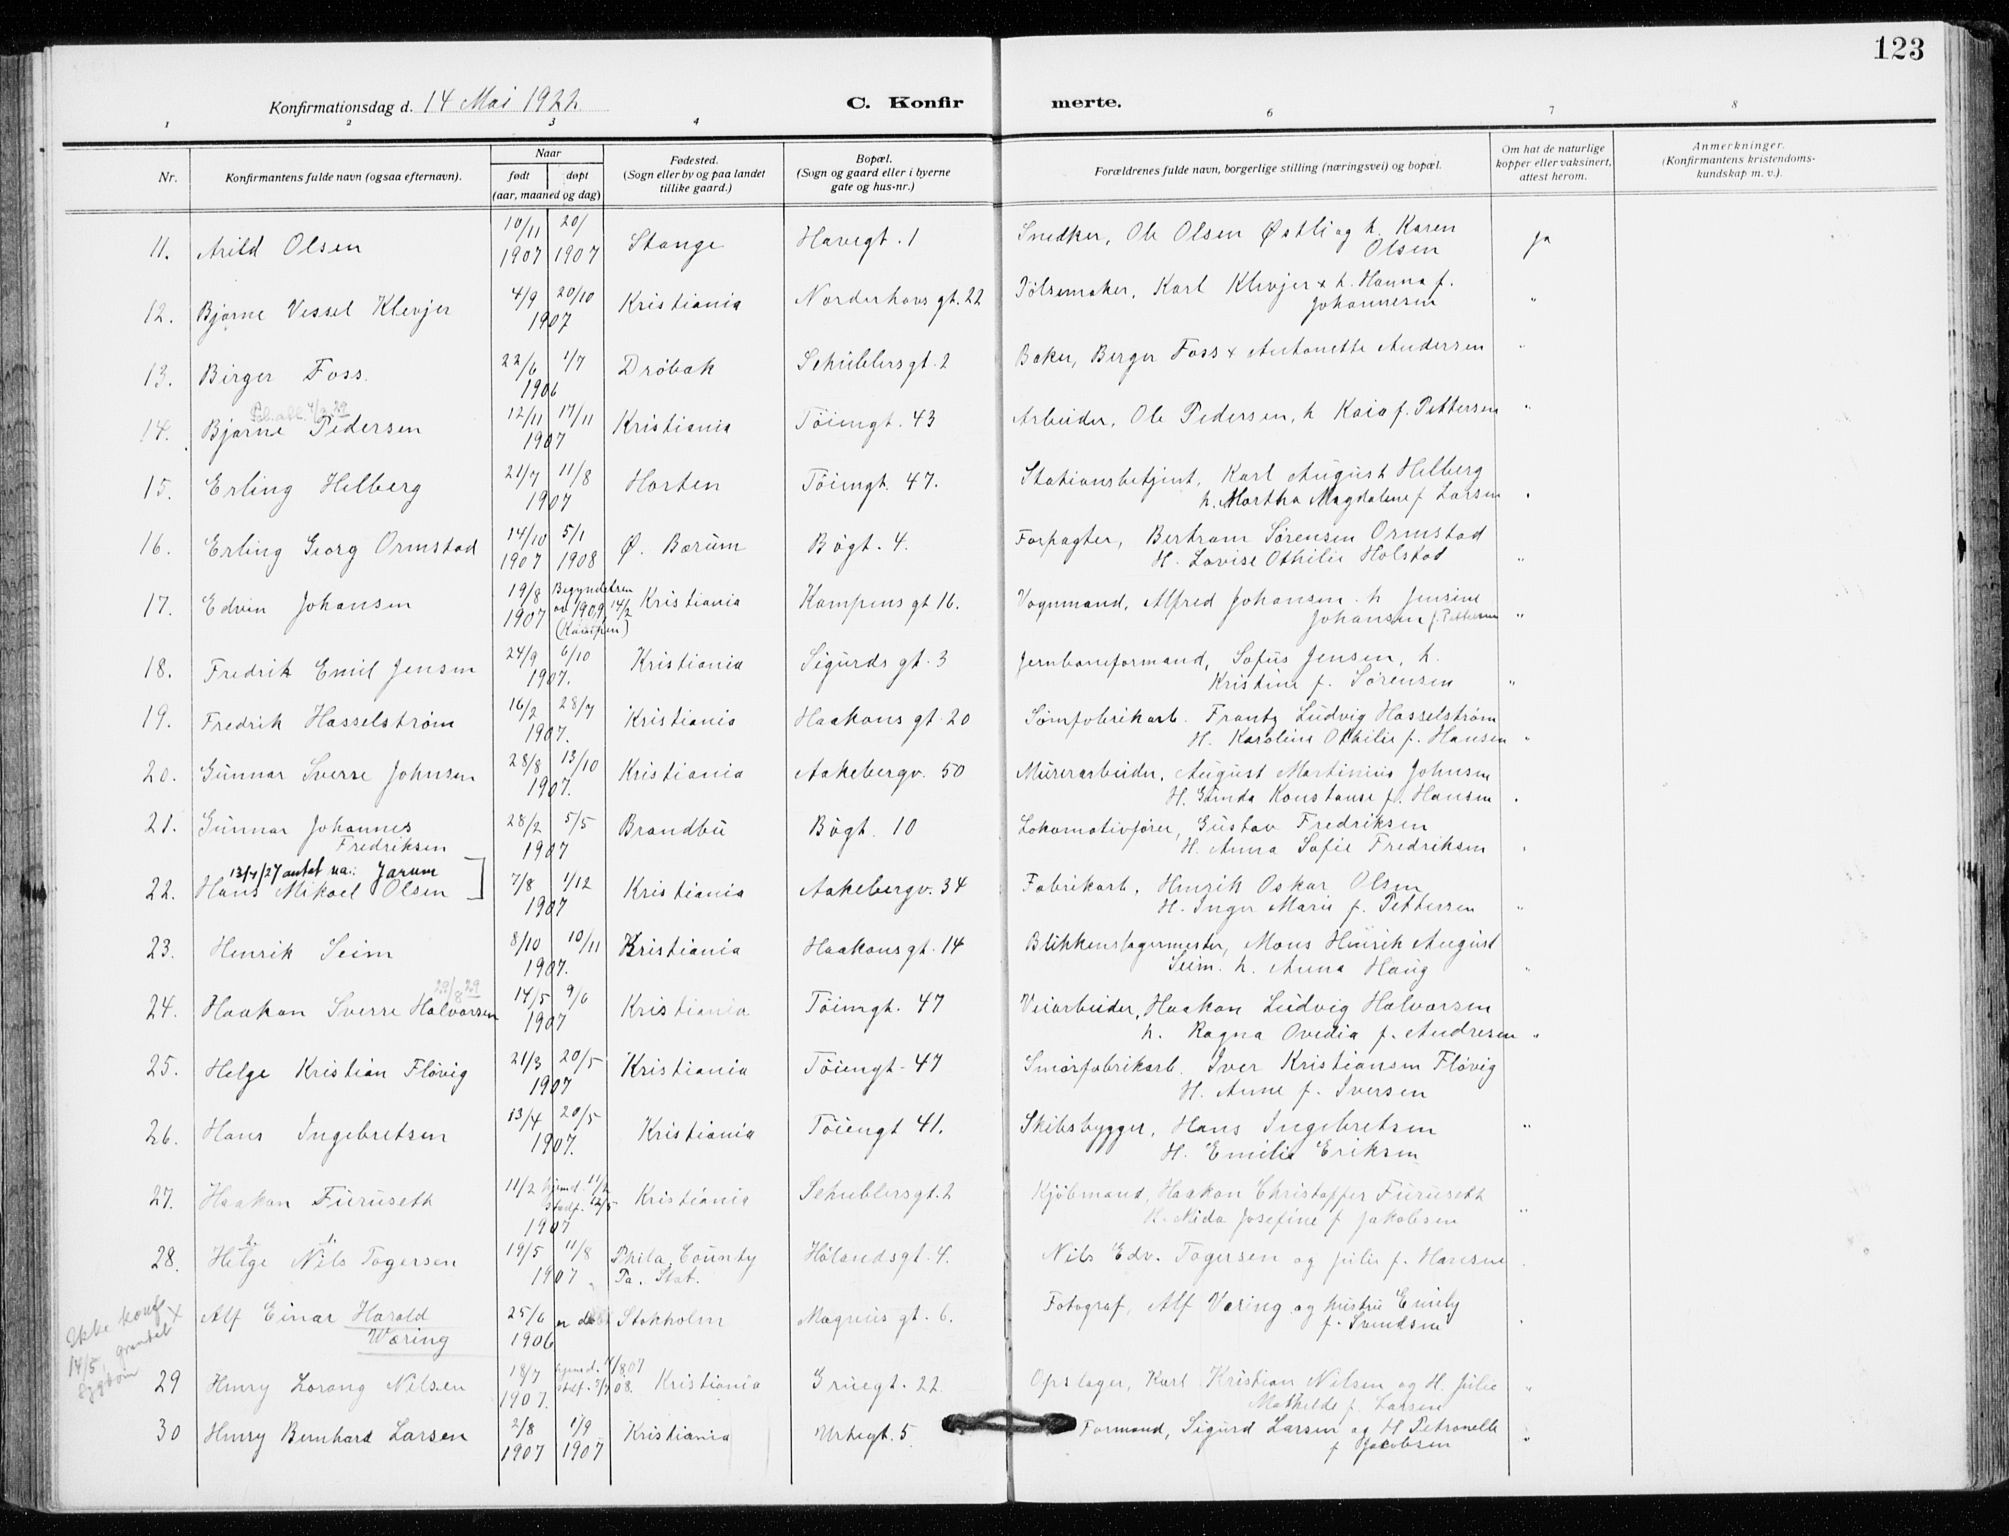 123
Konfirmationsdag d. 14 Mai 1922
C. Konfir merte.
1 2 3 4 6 7 8
Nr. Konfirmantens fulde navn (ogsaa efternavn). Naar født døpt (aar, maaned og dag) Fødested. (Sogn eller by og paa landet tillike gaard.) Bopæl. (Sogn og gaard eller i byerne gate og hus-nr.) Forældrenes fulde navn, borgerlige stilling (næringsvei) og bopæl. Om hat de naturlige kopper eller vaksinert, attest herom. Anmerkninger. (Konfirmantens kristendoms-kundskap m. v.).
11. Arild Olsen 10/11 1907 20/ 1907 Stange Havegt. 1 Snedker, Ole Olsen Østli og h. Karen
Olsen ja
12. Bjarne Vessel Klevjer 4/9 20/10 1907 Kristiania Norderhovs gt. 22 Pølsemaker, Karl Klevjer x h. Hanna f.
Johannesen "
13. Birger Foss. 22/6 1/7 1906 Drøbak Schüblersgt. 2 Baker, Berger Foss x Antonette Andersen "
4/3 29
14. Bjarne Pedersen 12/11 17/11 1907 Kristiania Töiengt. 43 Arbeider, Ole Pedersen, h Kaia f. Pettersen "
15. Erling Helberg 21/7 11/8 1907 Horten Töiengt. 47. Stationsbetjent, Karl August Helberg
h. Martha Magdalene f Larsen "
16. Erling Georg Ormstad 14/10 1907 5/1 1908 Ø. Bærum Bögt. 4. Forpagter, Bertram Sørensen Ormstad
H. Lovise Othilie Holstad "
17. Edvin Johansen 19/8 1907 Begyndelsen av 1909 14/2 (Kampen) Kristiania Kampens gt 16. Vognmand, Alfred Johansen h Jensine
Johansen f. Pettersen "
18. Fredrik Emil Jensen 24/9 6/10 1907. Kristiania Sigurds gt. 3 Jernbaneformand, Sofus Jensen, h.
Kristine f. Sørensen "
19. Fredrik Hasselstrøm 16/2 28/7 1907. Kristiania Haakons gt. 20 Sømfabrikarb. Frantz Ludvig Hasselstrøm
H. Karoline Othilie f. Hansen "
20. Gunnar Sverre Johnsen 28/8 13/10 1907. Kristiania Aakebergv. 50 Murerarbeider, August Martinius Johnsen
H. Gunda Konstanse f. Hansen "
21. Gunnar Johannes 28/2 5/5 1907 Brandbu Bögt. 10 Lokomotivfører, Gustav Fredriksen
Fredriksen H. Anna Sofie Fredriksen "
13/4/27 antat na.: Jarum
22. Hans Mikael Olsen 7/8 1/12 1907 Kristiania Aakebergv. 34 Fabrikarb. Henrik Oskar Olsen
H. Inger Marie f. Pettersen "
23. Henrik Seim 8/10 10/11 1907. Kristiania Haakonsgt. 14 Blikkenslagermester, Mons Henrik August
Seim. h. Anna Haug "
29/8 29
24. Haakon Sverre Halvorsen 14/5 9/6 1907 Kristiania Töiengt. 47 Veiarbeider, Haakon Ludvig Halvorsen
h. Ragna Ovedia f. Andresen "
25. Helge Kristian Fløvig 21/3 20/5 1907 Kristiania Töiengt. 47 Smörfabrikarb. Iver Kristiansen Fløvig
H. Anne f. Iversen
26. Hans Ingebretsen 13/4 20/5 1907. Kristiania Töiengt 41. Skibsbygger, Hans Ingebretsen "
H. Emilie Eriksen
27. Haakon Furuseth 11/2 hjemd. 11/2 stadf. 12/5 1907 Kristiania Schüblersgt. 2 Kjöbmand, Haakon Christoffer Furuseth
H. Nida Josefine f Jakobsen "
28. Helge Nils Togersen 19/5 11/8 1907 Phila. County Pa. Stat. Hølandsgt. 4. Nils Edv. Togersen og Julie f. Hansen
Ikke konf. 14/5, grundet sygdom x
Alf Einar Harald 25/6 1906 er døbt Stokholm Magnus gt. 6. Fotograf, Alf Væring og hustru Emily
Væring f. Svendsen
29 Henry Lorang Nilsen 18/7 1907. hjemd. 4/8 07 stdf. 5/7 08. Kristiania Gruegt. 22 Opslager, Karl Kristian Nilsen og H. Julie "
Mathilde f. Larsen
30 Henry Bernhard Larsen 2/8 1907 1/9 1907 Kristiania Urtegt. 5 Formand, Sigurd Larsen og H Petronelle
f Jacobsen "